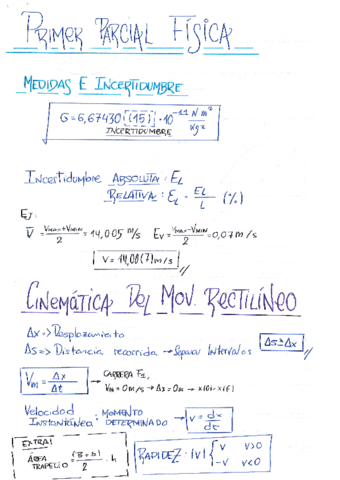 PRIMER PARCIAL FÍSICA
MEDIDAS E INCERTIDUMBRE
G = 6,67430 (15) · 10⁻¹¹ N m²/kg²
INCERTIDUMBRE
Incertidumbre ABSOLUTA: E_L
RELATIVA: E_L = E_L/L (%)
EJ:
V̄ = (Vmax+Vmin)/2 = 14,005 m/s E_V = (Vmax-Vmin)/2 = 0,07 m/s
V = 14,00(7) m/s
CINEMÁTICA DEL MOV. RECTILÍNEO
Δx => Desplazamiento
Δs => Distancia recorrida → Separar Intervalos Δs ≥ Δx
V_m = Δx/Δt → CARRERA F1,
V_m = 0 m/s → Δx = 0m → x(0) = x(f)
Velocidad
INSTANTÁNEA: MOMENTO DETERMINADO → v = dx/dt
EXTRA!
ÁREA TRAPECIO = (B+b)/2 · h
RAPIDEZ: |v| { v v>0
-v v<0